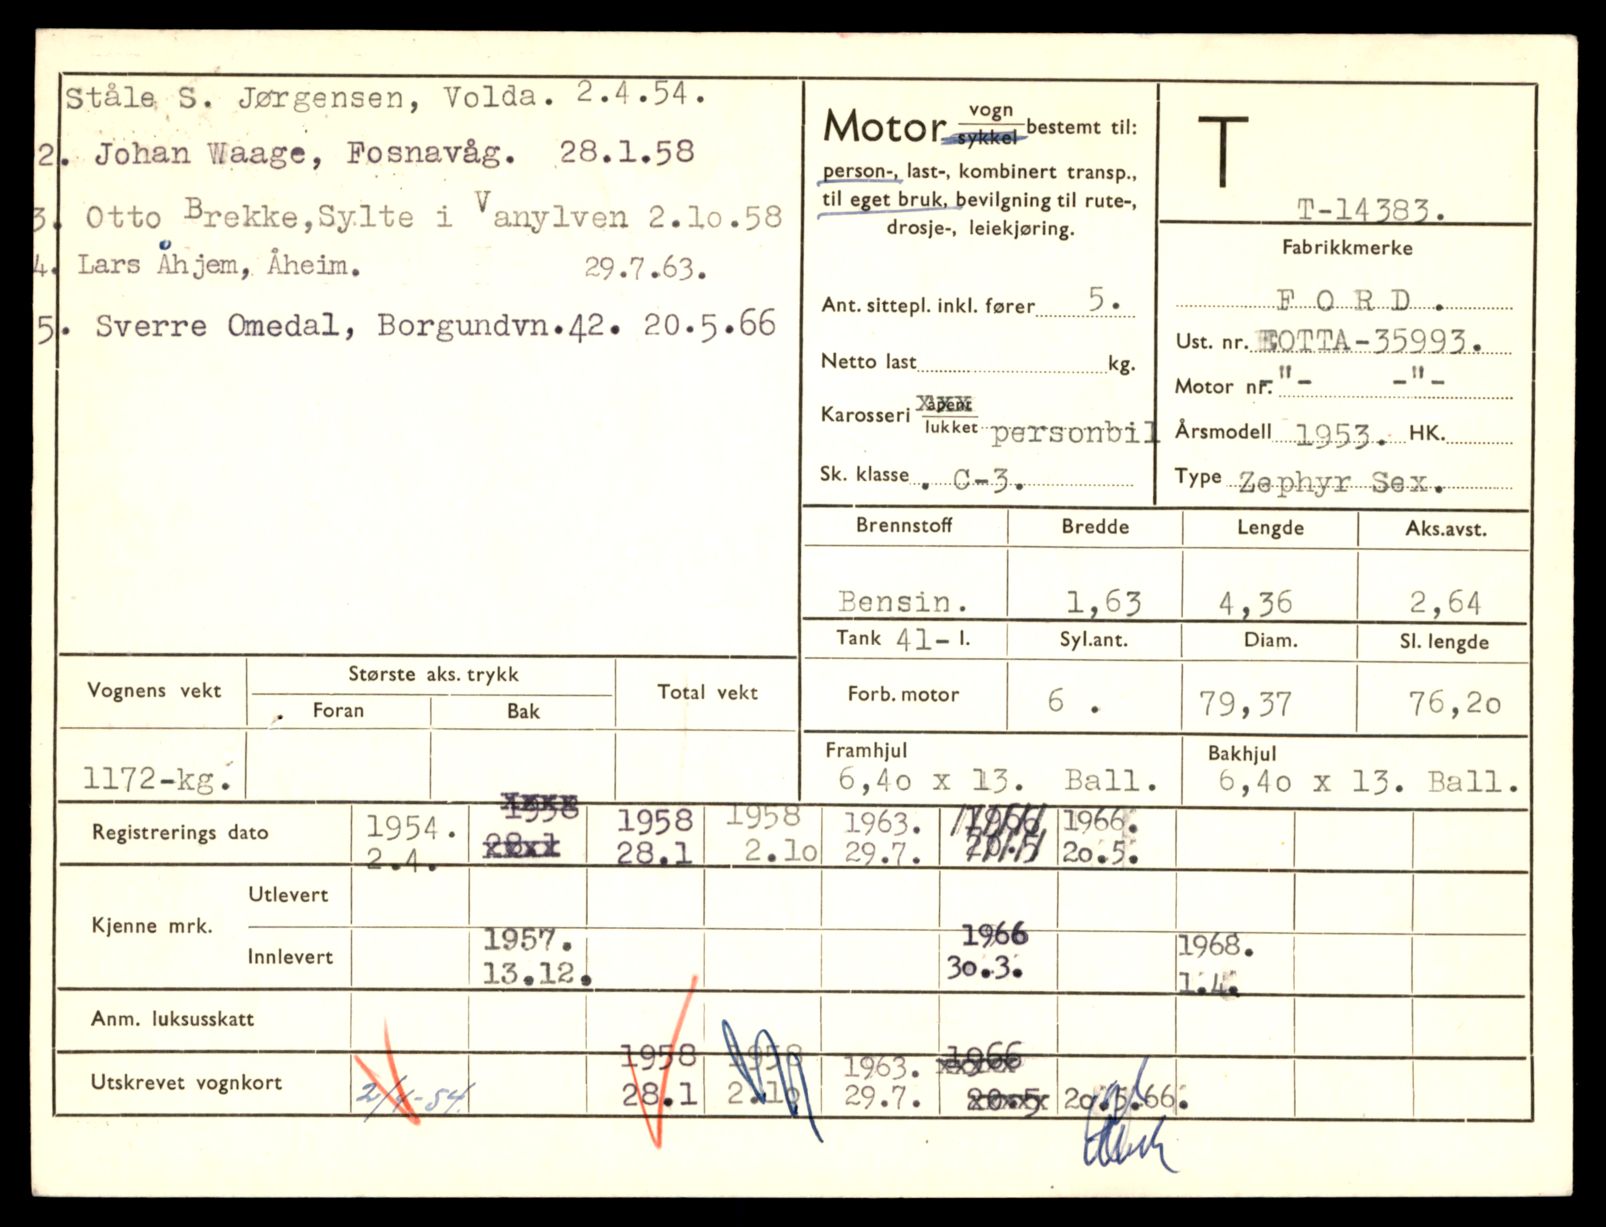 Ståle S. Jørgensen, Volda. 2.4.54.
2. Johan Waage, Fosnavåg. 28.1.58
3. Otto Brekke,Sylte i Vanylven 2.1o.58
4. Lars Åhjem, Åheim. 29.7.63.
5. Sverre Omedal, Borgundvn.42. 20.5.66
Motor vogn sykkel bestemt til:
person-, last-, kombinert transp.,
til eget bruk, bevilgning til rute-,
drosje-, leiekjøring.
Ant. sittepl. inkl. fører 5.
Netto last kg.
Karosseri åpent
lukket personbil
Sk. klasse . C-3.
T
T-14383.
Fabrikkmerke
F O R D .
Ust. nr. EOTTA-35993.
Motor nr. -"- -"-
Årsmodell 1953. HK.
Type Zephyr Sex.
Brennstoff Bredde Lengde Aks.avst.
Bensin. 1,63 4,36 2,64
Tank 41- l. Syl.ant. Diam. Sl. lengde
Forb. motor 6 . 79,37 76,2o
Framhjul Bakhjul
6,4o x 13. Ball. 6,4o x 13. Ball.
Vognens vekt Største aks. trykk Total vekt
Foran Bak
1172-kg.
Registrerings dato 1954. 1958 1958 1958 1963. 1966 1966.
2.4. 28.1 28.1 2.1o 29.7. 20.5 2o.5.
Kjenne mrk. Utlevert
Innlevert 1957. 1966 1968.
13.12. 3o.3. 1.4.
Anm. luksusskatt
Utskrevet vognkort 2/4-54. 1958 1958 1963. 1966
28.1 2.1o 29.7. 20.5 2o.5.66.